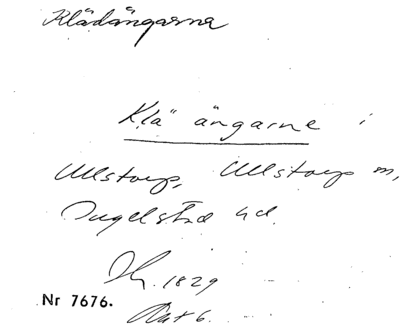 Klädängarna
Klä ängarne i
Ullstorp, Ullstorp m,
Ingelstad hd.
1829
Nr 7676.